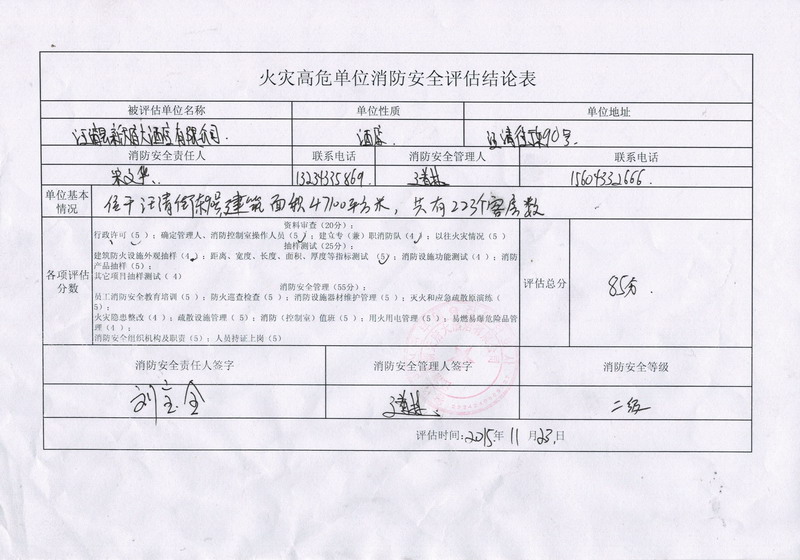 火灾高危单位消防安全评估结论表
被评估单位名称 单位性质 单位地址
酒店 汪清街 90号
消防安全责任人 联系电话 消防安全管理人 联系电话
宋文华 13234335869 15604332666
单位基本情况 位于汪清街 建筑面积47100平方米，共有223个客房数
各项评估分数
资料审查（20分）：
行政许可（5）；确定管理人、消防控制室操作人员（5）；建立专（兼）职消防队（4）；以往火灾情况（5）
抽样测试（25分）：
建筑防火设施外观抽样（4）；距离、宽度、长度、面积、厚度等指标测试（5）；消防设施功能测试（4）；消防
产品抽样（5）；
其它项目抽样测试（4）
消防安全管理（55分）：
员工消防安全教育培训（5）；防火巡查检查（5）；消防设施器材维护管理（5）；灭火和应急疏散原演练（
5）；
火灾隐患整改（4）；疏散设施管理（5）；消防（控制室）值班（5）；用火用电管理（5）；易燃易爆危险品管
理（4）；
消防安全组织机构及职责（5）；人员持证上岗（5）
评估总分 85分
消防安全责任人签字 消防安全管理人签字 消防安全等级
刘 全 二级
评估时间：2015年11月23日